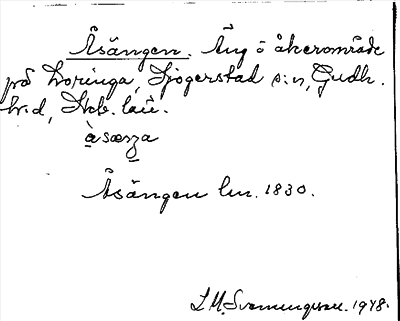 Åsängen. Äng o åkerområde
på Loringa, Sjogerstad s:n, Gudh.
h:d, Skb. län.
àsæŋa
Åsängen lm. 1830.
L. M. Svenungsson. 1948.